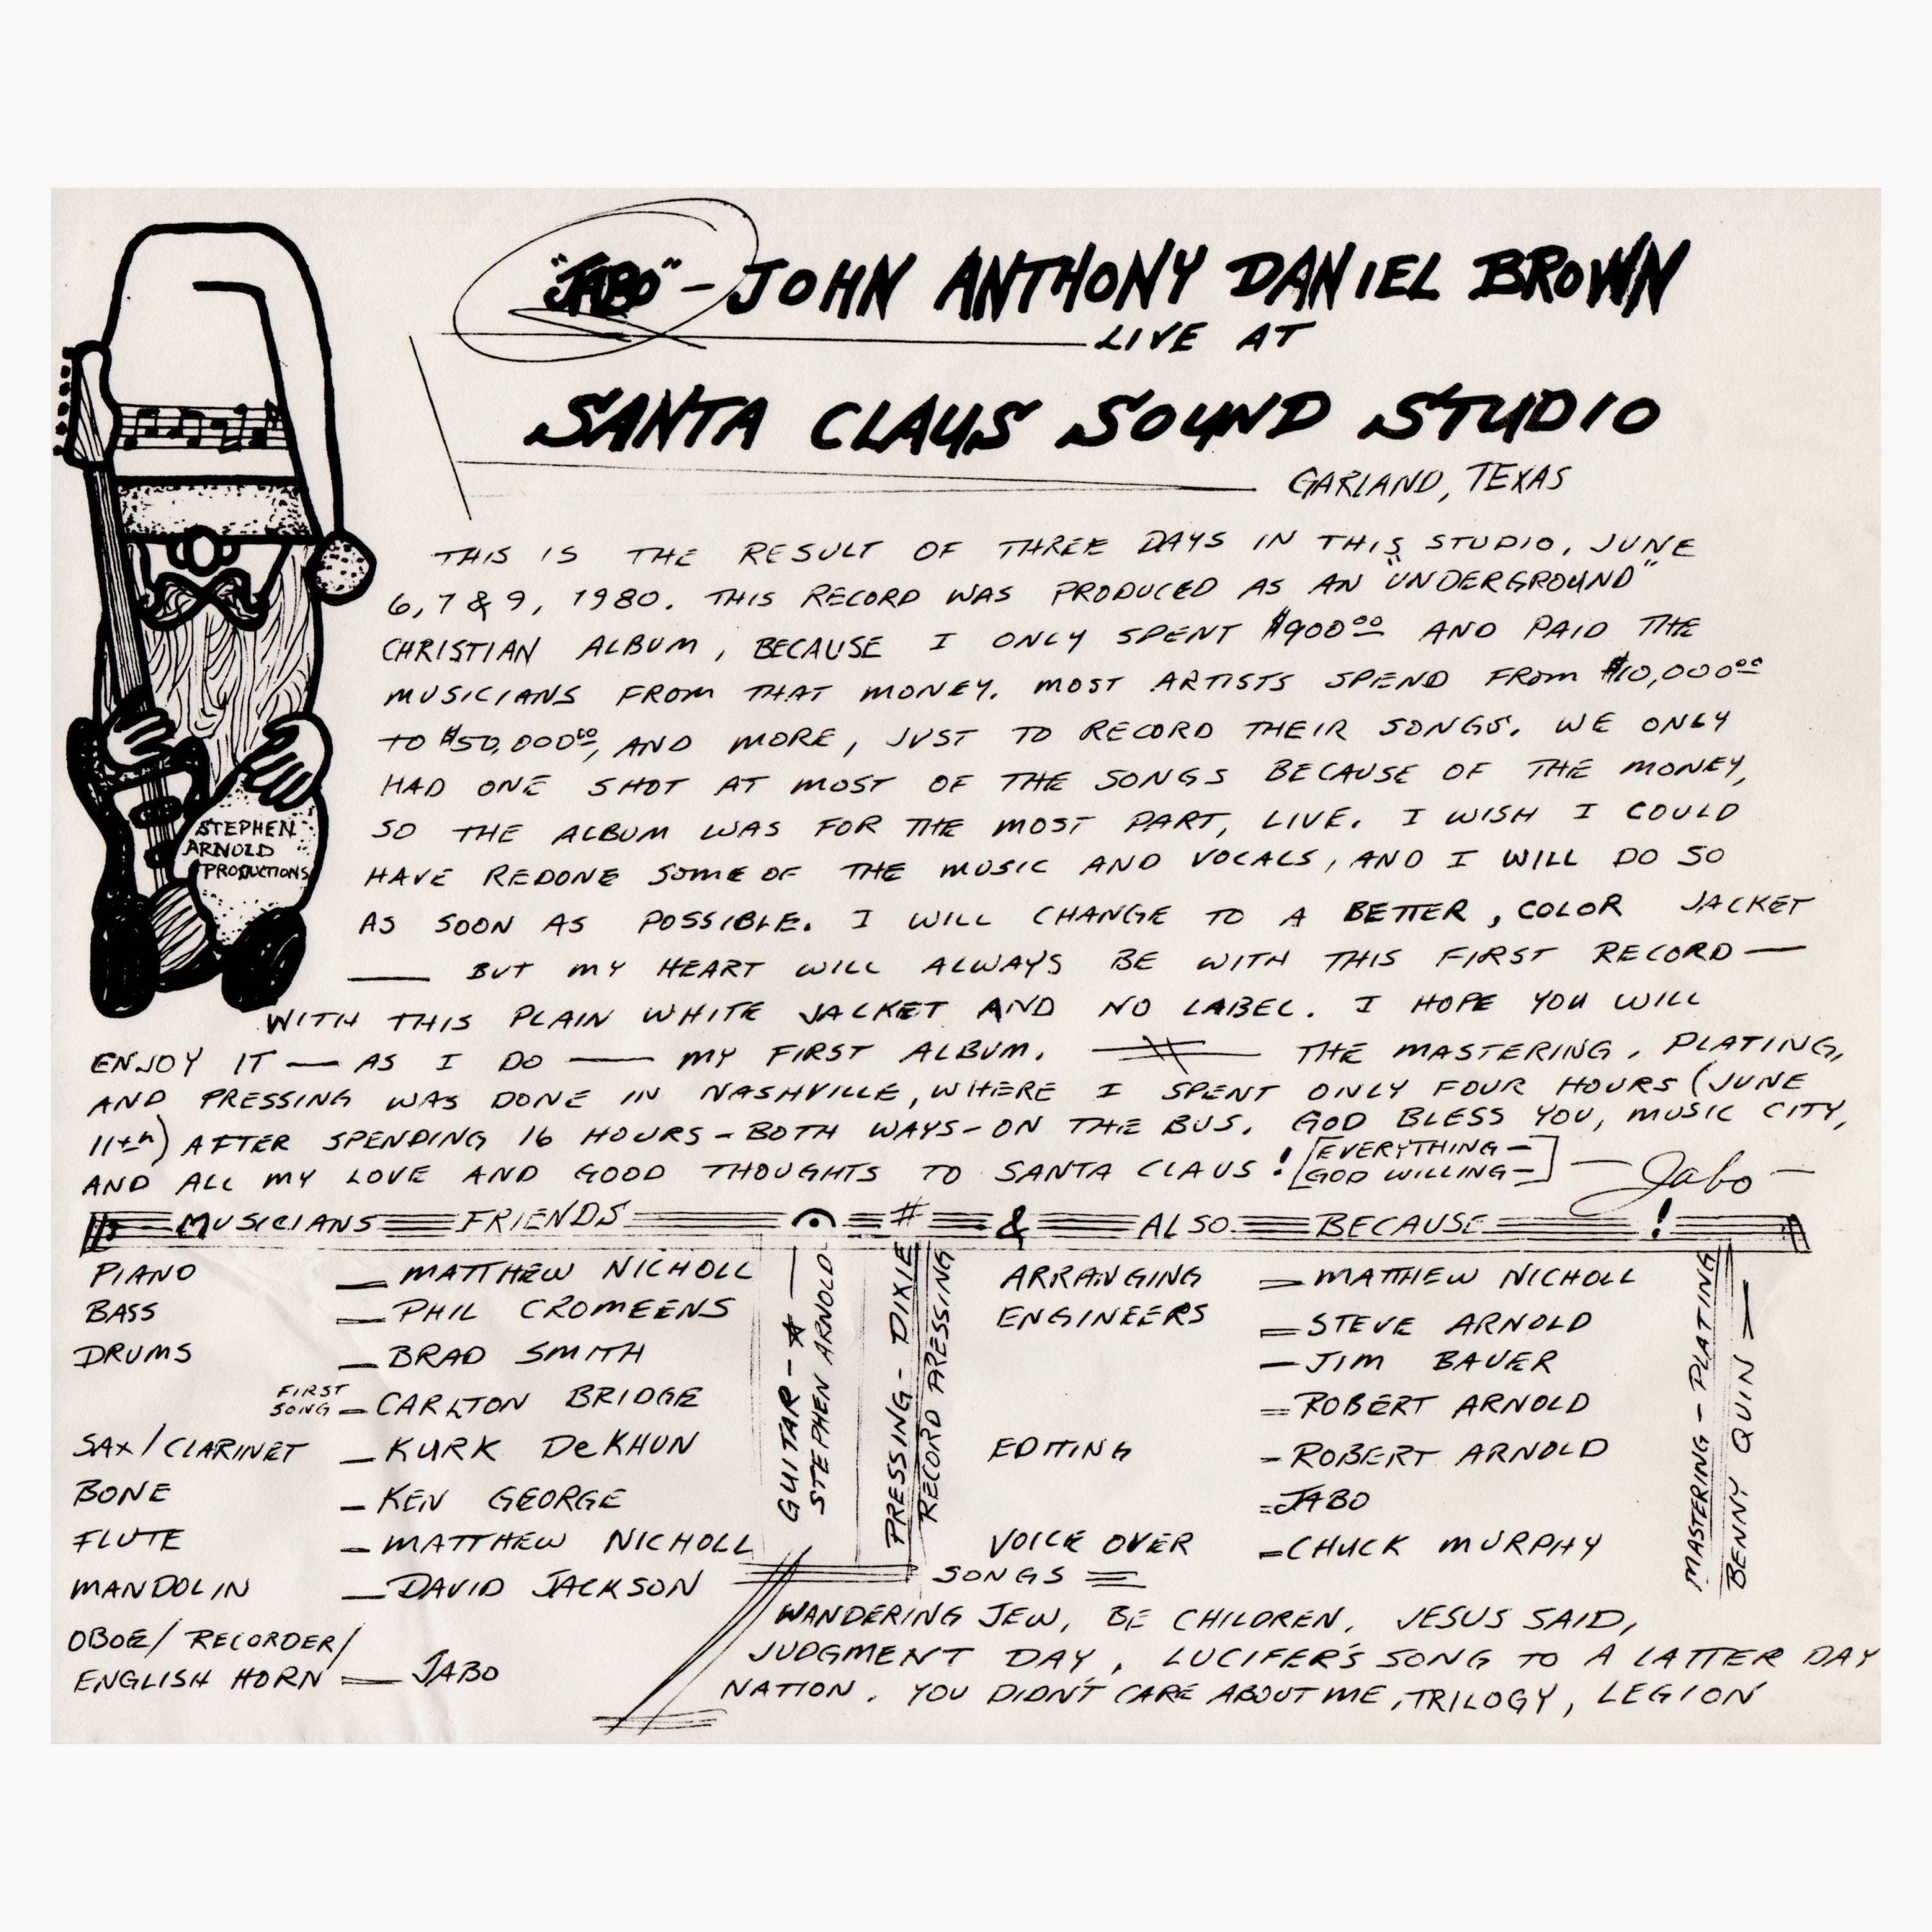 "JABO" - JOHN ANTHONY DANIEL BROWN
LIVE AT
SANTA CLAUS SOUND STUDIO
GARLAND, TEXAS
THIS IS THE RESULT OF THREE DAYS IN THIS STUDIO, JUNE
6, 7 & 9, 1980. THIS RECORD WAS PRODUCED AS AN "UNDERGROUND"
CHRISTIAN ALBUM, BECAUSE I ONLY SPENT $900.00 AND PAID THE
MUSICIANS FROM THAT MONEY. MOST ARTISTS SPEND FROM $10,000.00
TO $50,000.00, AND MORE, JUST TO RECORD THEIR SONGS. WE ONLY
HAD ONE SHOT AT MOST OF THE SONGS BECAUSE OF THE MONEY,
SO THE ALBUM WAS FOR THE MOST PART, LIVE. I WISH I COULD
HAVE REDONE SOME OF THE MUSIC AND VOCALS, AND I WILL DO SO
AS SOON AS POSSIBLE. I WILL CHANGE TO A BETTER, COLOR JACKET
— BUT MY HEART WILL ALWAYS BE WITH THIS FIRST RECORD —
WITH THIS PLAIN WHITE JACKET AND NO LABEL. I HOPE YOU WILL
ENJOY IT — AS I DO — MY FIRST ALBUM. THE MASTERING, PLATING,
AND PRESSING WAS DONE IN NASHVILLE, WHERE I SPENT ONLY FOUR HOURS (JUNE
11th) AFTER SPENDING 16 HOURS - BOTH WAYS - ON THE BUS. GOD BLESS YOU, MUSIC CITY,
AND ALL MY LOVE AND GOOD THOUGHTS TO SANTA CLAUS! [EVERYTHING -
GOD WILLING -] — Jabo —
STEPHEN
ARNOLD
PRODUCTIONS
MUSICIANS FRIENDS # & ALSO BECAUSE !
PIANO — MATTHEW NICHOLL
BASS — PHIL CROMEENS
DRUMS — BRAD SMITH
FIRST
SONG — CARLTON BRIDGE
SAX / CLARINET — KURK DeKHUN
BONE — KEN GEORGE
FLUTE — MATTHEW NICHOLL
MANDOLIN — DAVID JACKSON
OBOE / RECORDER /
ENGLISH HORN — JABO
GUITAR - ☆ —
STEPHEN ARNOLD
PRESSING - DIXIE
RECORD PRESSING
ARRANGING = MATTHEW NICHOLL
ENGINEERS = STEVE ARNOLD
— JIM BAUER
= ROBERT ARNOLD
EDITING - ROBERT ARNOLD
= JABO
VOICE OVER = CHUCK MURPHY
MASTERING - PLATING
BENNY QUIN —
SONGS =
WANDERING JEW, BE CHILDREN, JESUS SAID,
JUDGMENT DAY, LUCIFER'S SONG TO A LATTER DAY
NATION, YOU DIDN'T CARE ABOUT ME, TRILOGY, LEGION